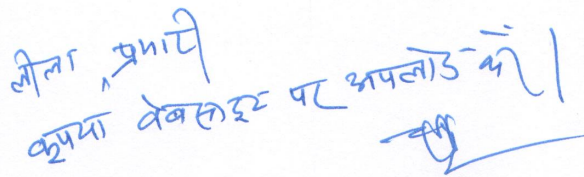 लीला प्रभारी
कृपया वेबसाइट पर अपलोड करें।